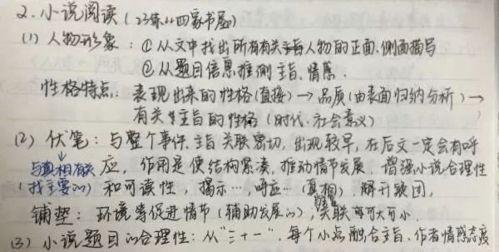 2. 小说阅读(23练《四嵩书屋》)
(1) 人物形象:①从文中找出所有有关于每人物的正面、侧面描写
②从题目信息推测主旨、情感.
性格特点:表现出来的性格(直接)→品质(由表面归纳分析)→
有关主旨的性格(时代、社会意义)
(2) 伏笔:与整个事件、主旨关联密切,出现较早,在后文一定会有呼
与真相有关 应,作用是使结构紧凑,推动情节发展,增强小说合理性
(找主要的) 和可读性,揭示…,呼应…(真相),解开谜团,
铺垫:环境等促进情节(辅助发展的),关联可大可小.
(3) 小说题目的合理性:从“三十一”,每个小点融合主旨、作者情感态度